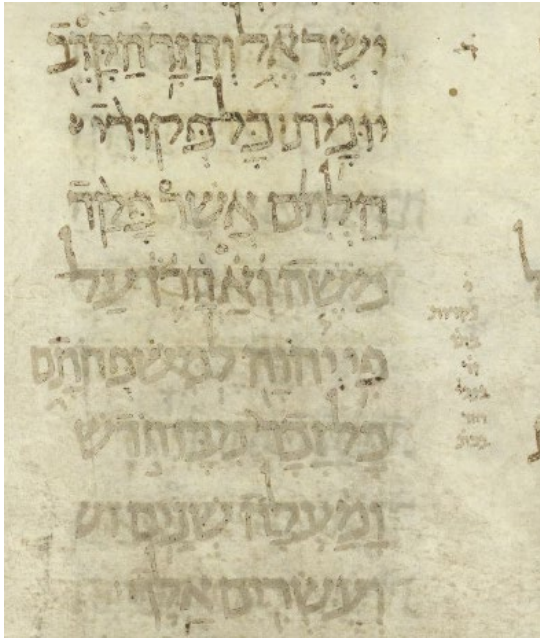 יִשְׂרָאֵל וְהַזָּר הַקָּרֵב
יוּמָת׃ כָּל פְּקוּדֵי
הַלְוִיִּם אֲשֶׁר פָּקַד
מֹשֶׁה וְאַהֲרֹן עַל
פִּי יְהוָה לְמִשְׁפְּחֹתָם
כָּל זָכָר מִבֶּן חֹדֶשׁ
וָמַעְלָה שְׁנַיִם
וְעֶשְׂרִים אָלֶף
י
נקדות